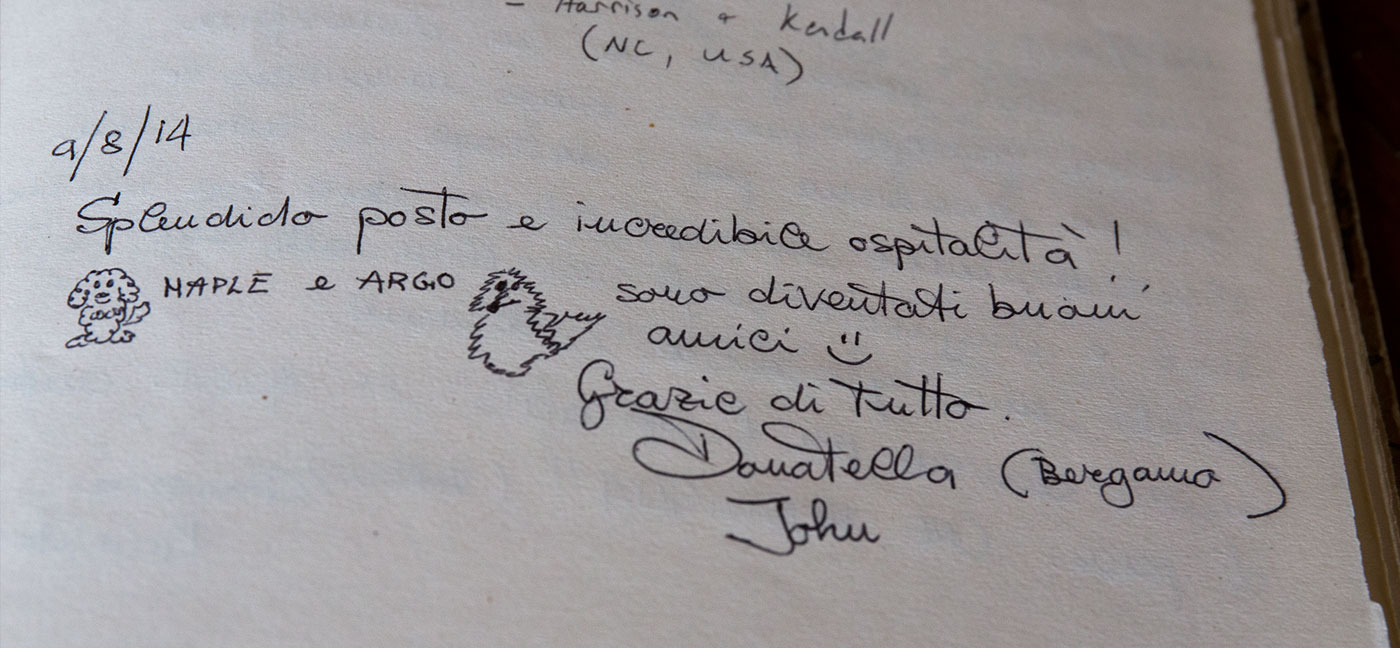 - Harrison & Kendall
(NC, USA)
9/8/14
Splendido posto e incredibile ospitalità!
MAPLE e ARGO sono diventati buoni
amici
Grazie di tutto.
Donatella (Bergamo)
John